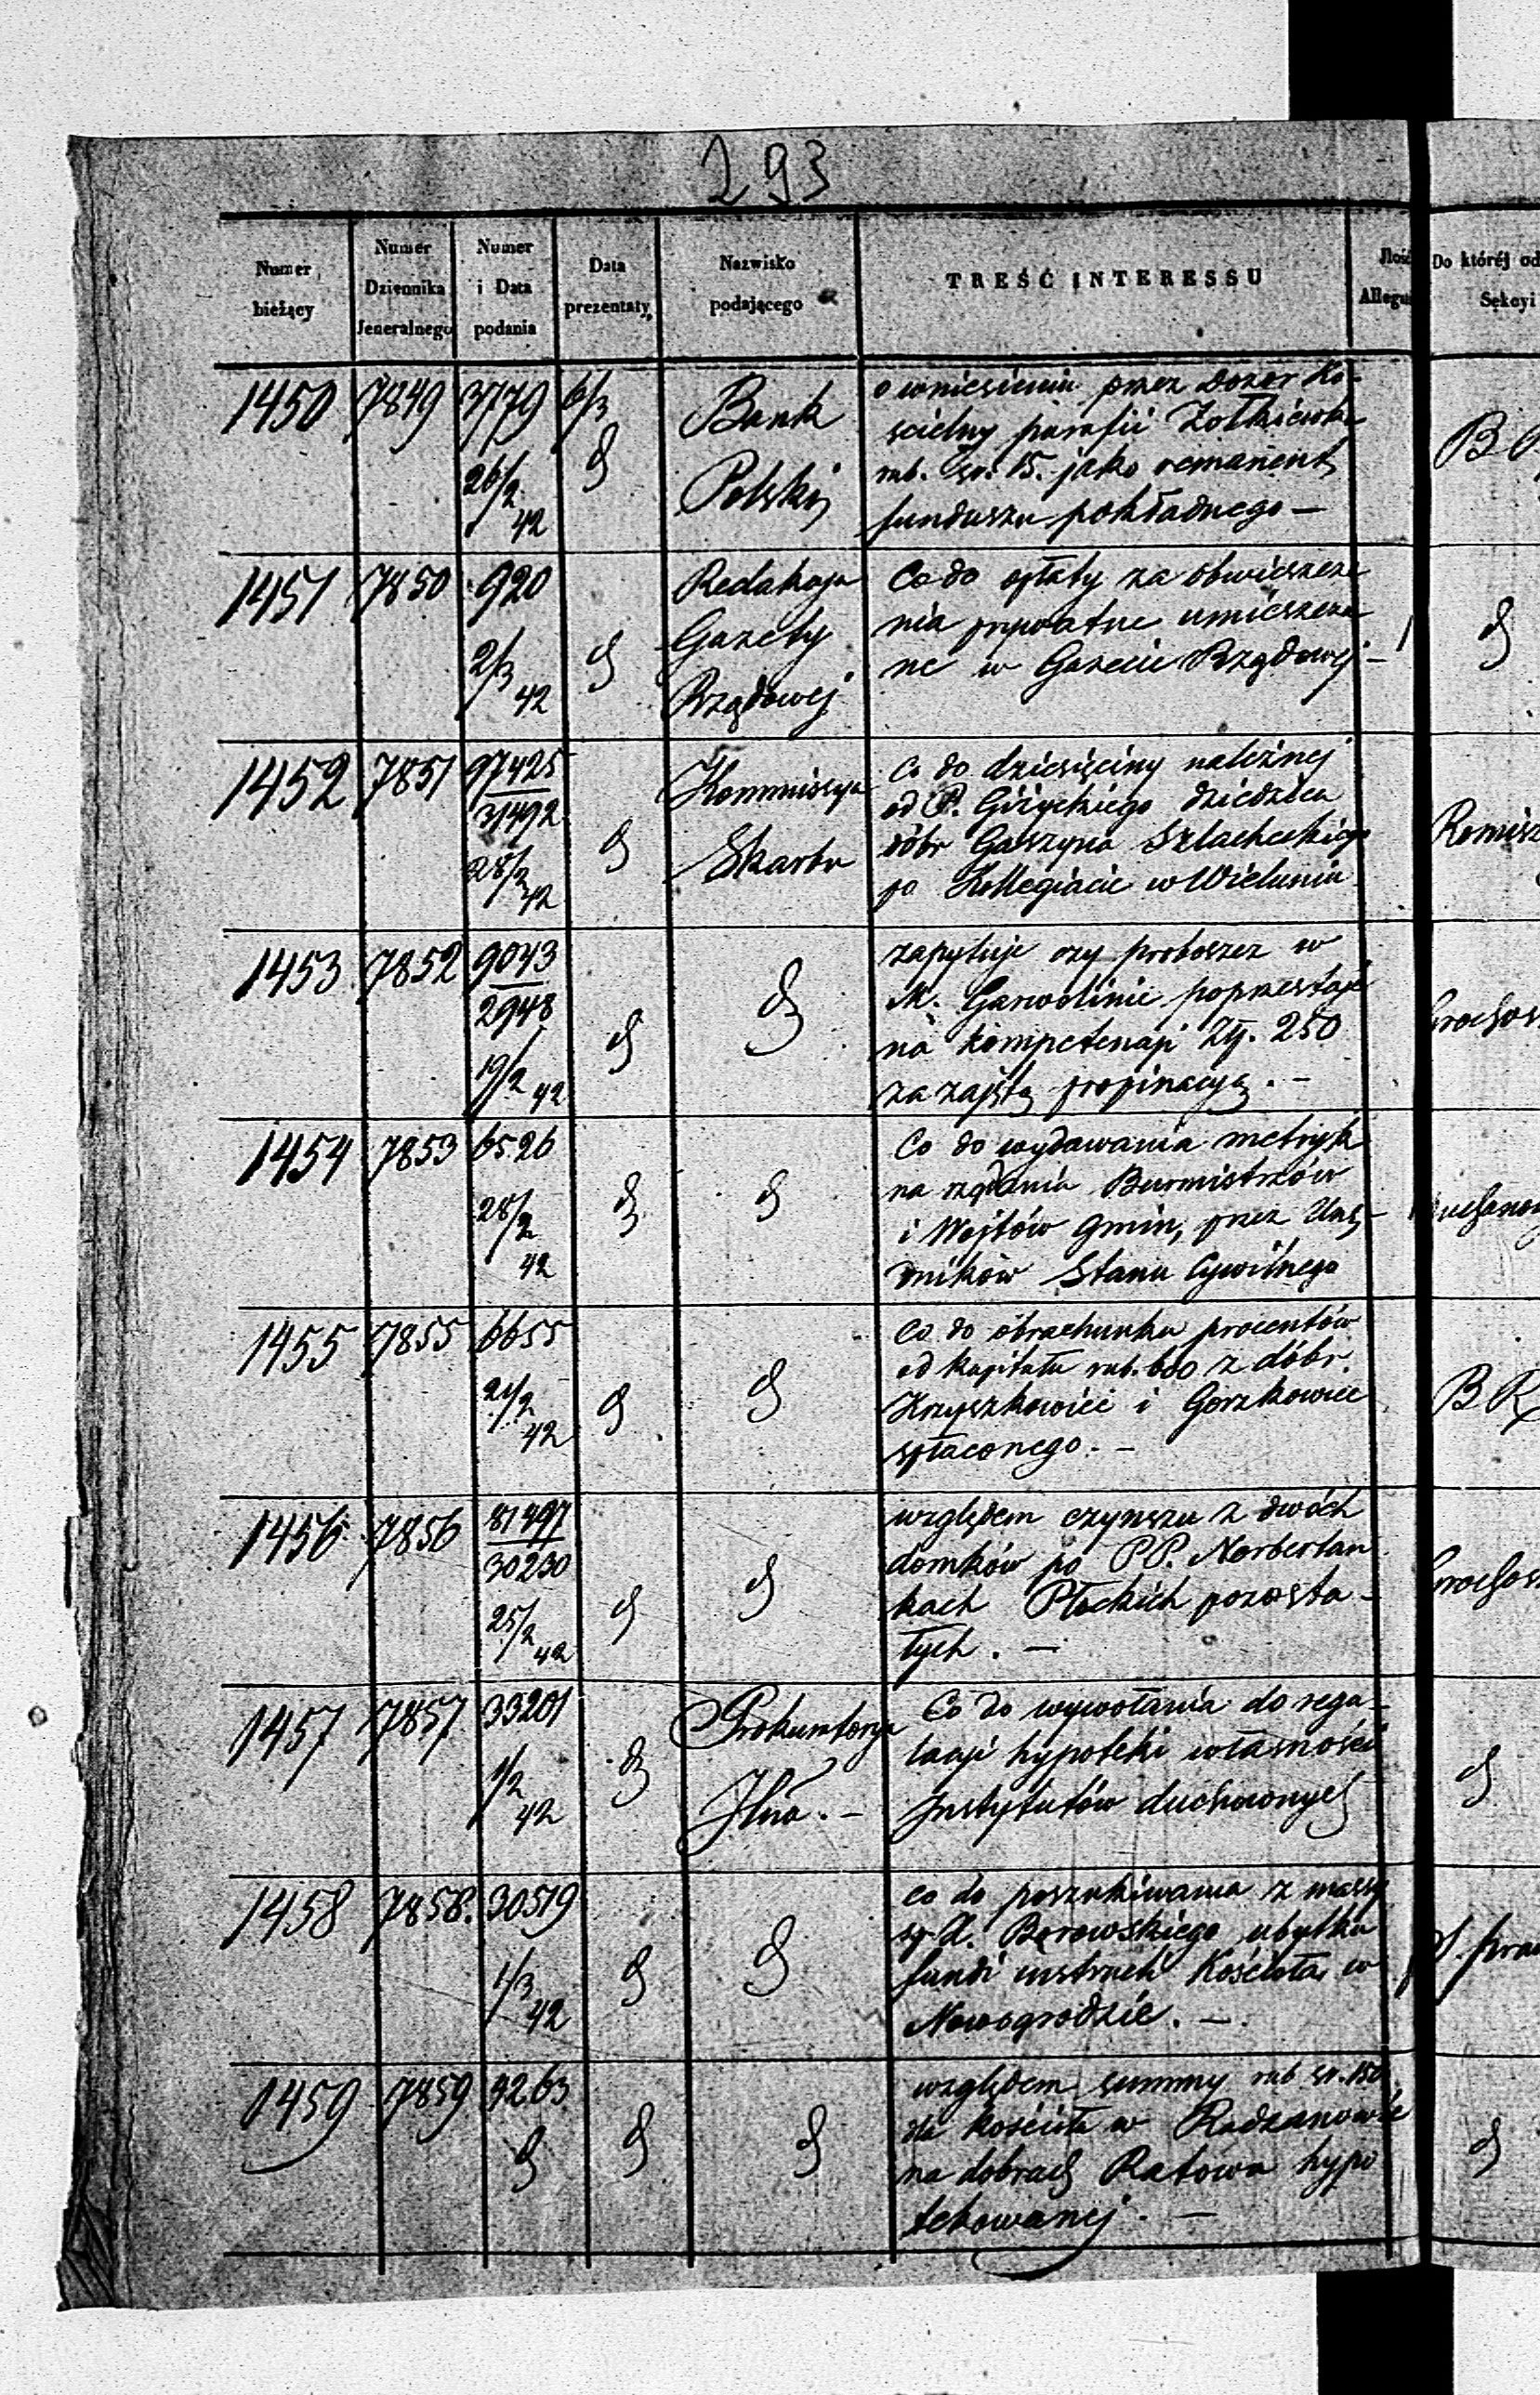 293
Numer bieżący
Numer Dziennika Jeneralnego
Numer i Data podania
Data prezentaty
Nazwisko podającego
TREŚĆ INTERESSU
Ilość
Do któréj od
Sekcyi
1450 7849 3779 26/2 42 6/3
Bank
Polski
o wniesieniu przez Dozor Ko-
ścielny parafii Żołkiewka
rub. sr. 15. jako remanent
funduszu pokładnego —
1451 7850 920 2/3 42
Redakcya
Gazety
Rządowej
Co do opłaty za obwieszcze
nia prywatne umieszczo
ne w Gazecie Rządowej —
1
1452 7851 97425 31492 28/2 42
Kommissya
Skarbu
Co do dziesięciny należnej
od P. Giżyckiego dziedzica
dóbr Gaszyna Szlacheckiego
po Kollegiacie w Wieluniu
1453 7852 9043 2948 19/2 42
zapytuje czy proboszcz w
M. Garwolinie poprzestaje
na kompetencyi Zł. 250
za zajętą propinacyą. —
1454 7853 6526 28/2 42
Co do wydawania metryk
na rządania Burmistrzów
i Wójtów gmin, przez Urzę-
dników Stanu Cywilnego
1455 7855 6655 21/2 42
Co do obrachunku procentów
od kapitału rub. 600 z dóbr.
Krzyszkowice i Gorzkowice
spłaconego. —
1456 7856 81497 30230 25/2 42
względem czynszu z dwóch
domków po PP. Norbertan
kach Płockich pozosta-
łych. —
1457 7857 33201 1/2 42
Prokuratorya
Co do wywołania do regu-
lacyi hypoteki własności
Instytutów duchownych
1458 7858. 30519 1/3 42
co do poszukiwania z massy
Borowskiego ubytku
fundi instructi Kościoła w
Nowogrodzie. —
1459 7859 3263
względem summy rub sr. 150
dla kościoła w Radzanowie
na dobrach Ratowa hypo
tekowanej. —